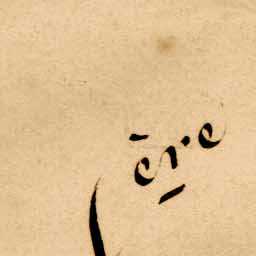 ère